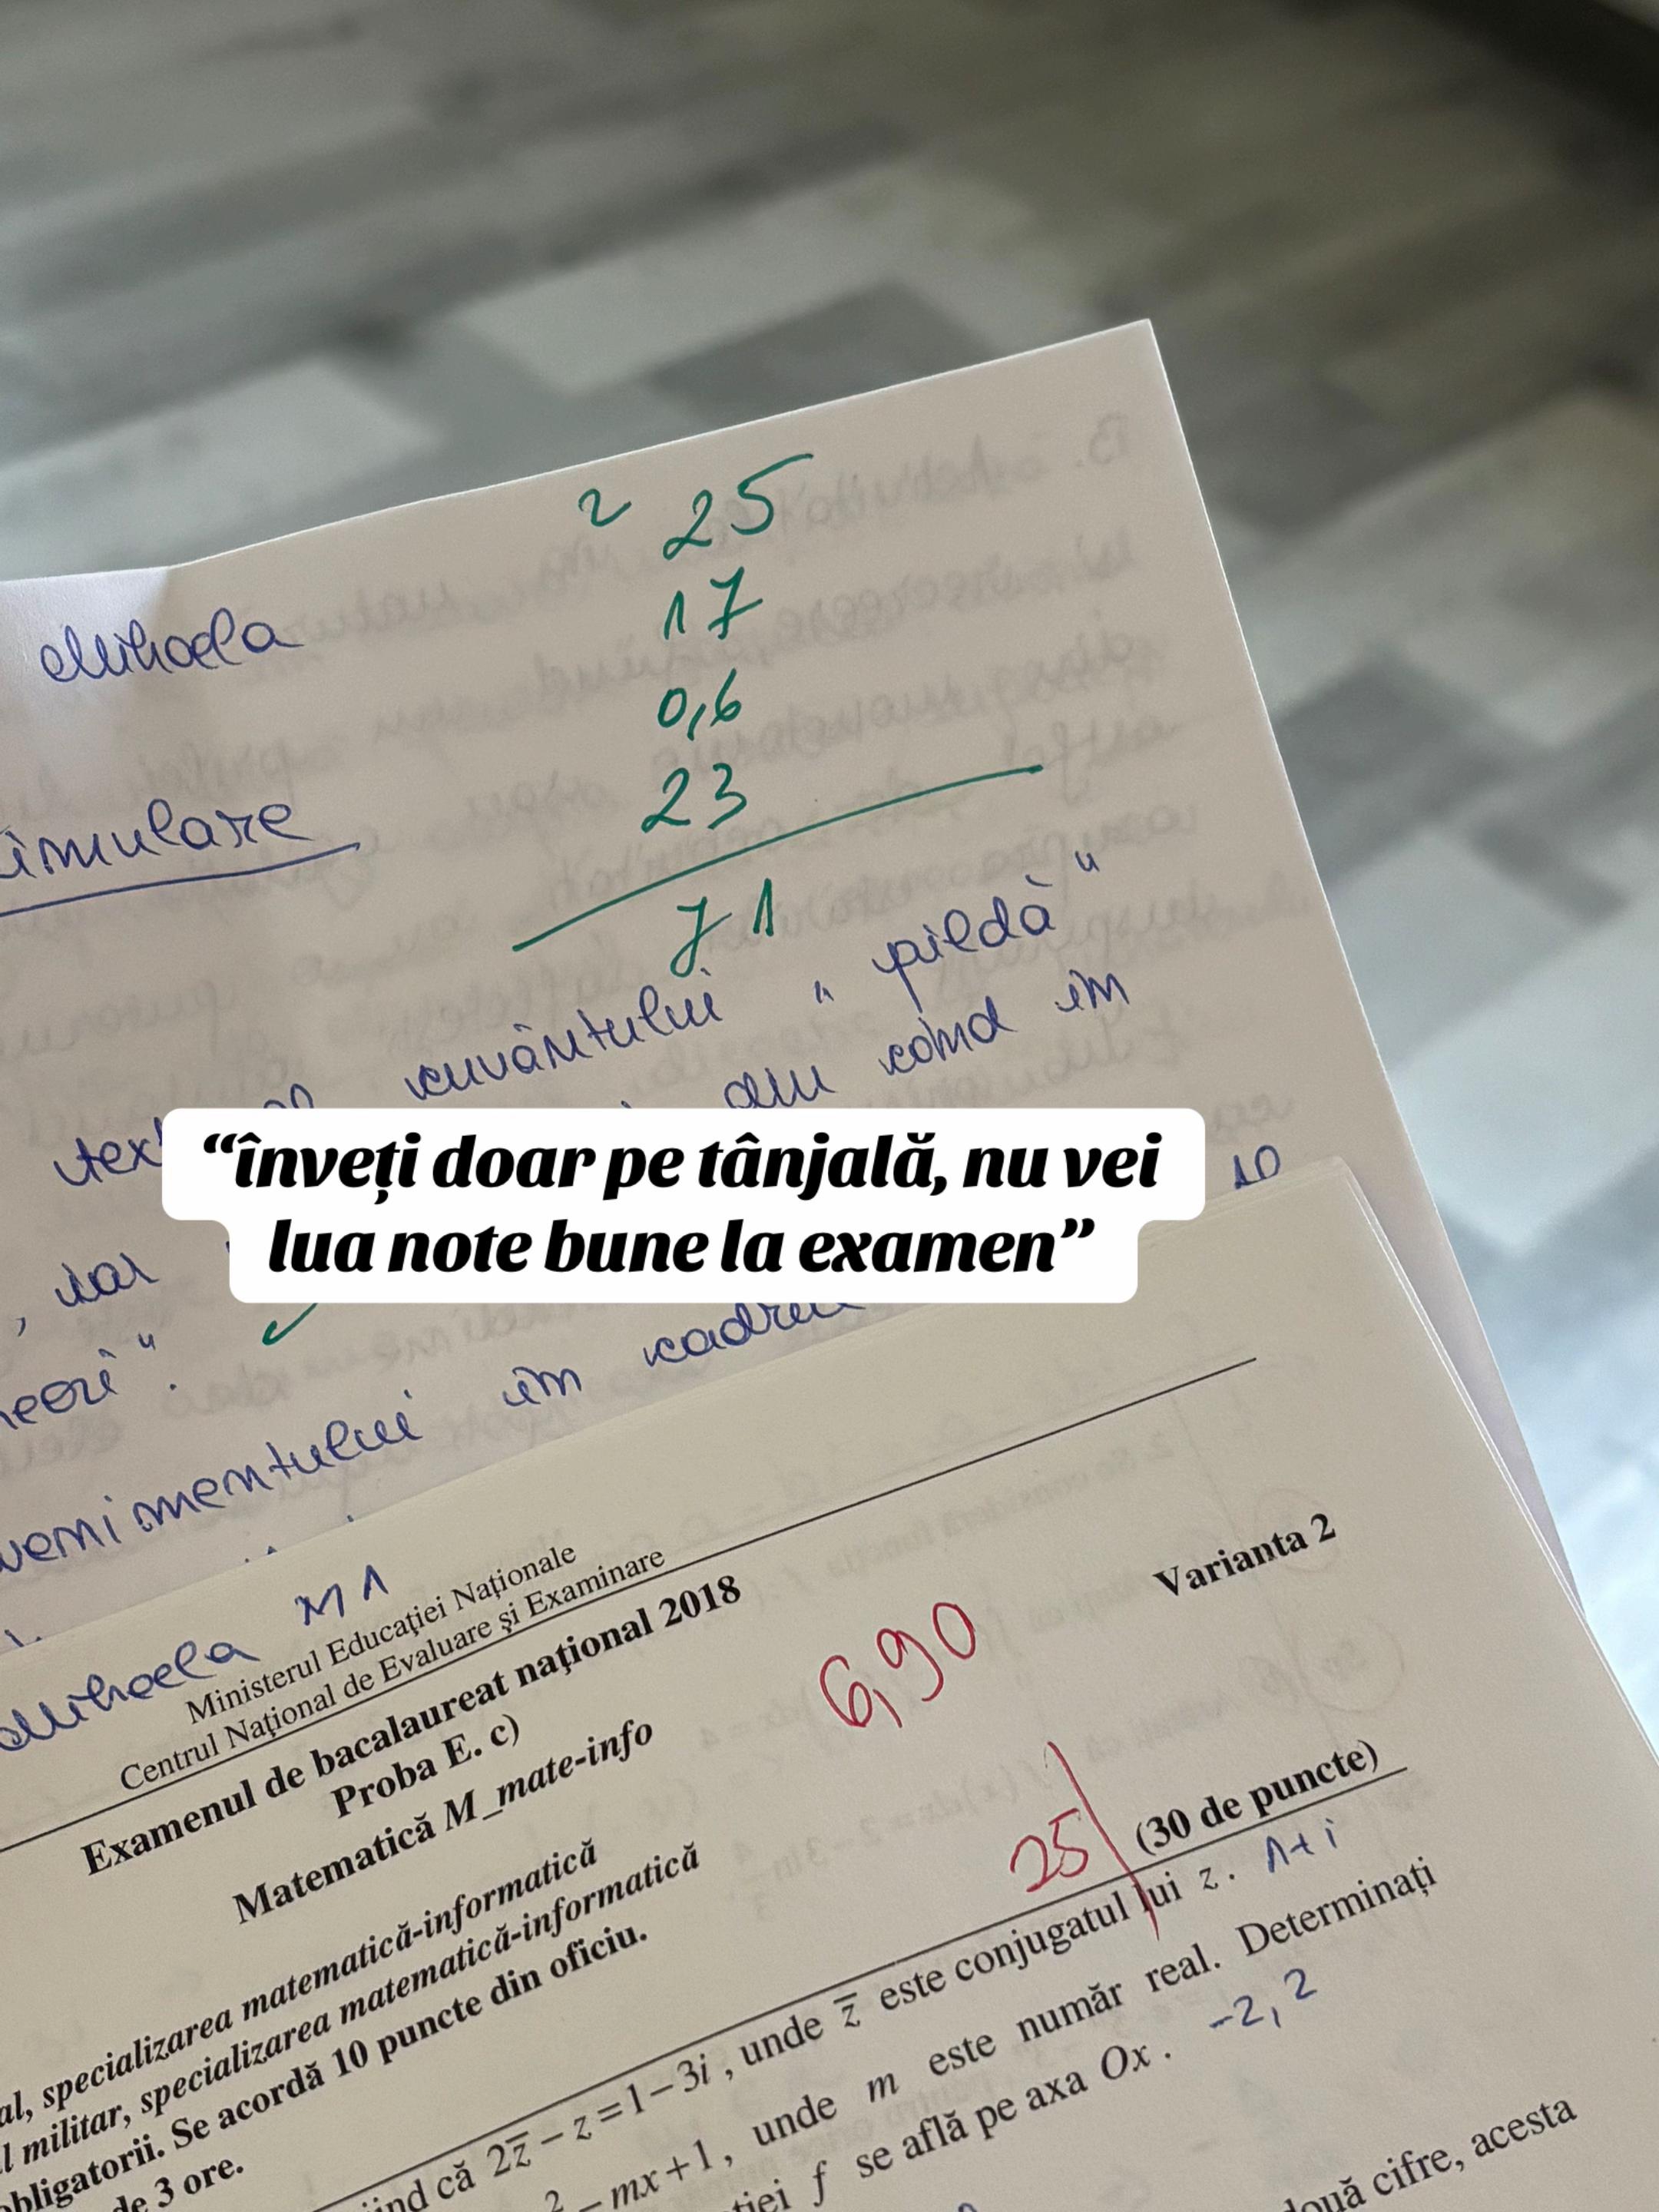 2 25
17
Mihaela
0,6
23
imulare
71
cuvântului " pildă "
când în
"înveți doar pe tânjală, nu vei
10
lua note bune la examen"
, iar
în cadrul
venimentului
Mihaela M1
Ministerul Educaţiei Naţionale
Centrul Naţional de Evaluare şi Examinare
Examenul de bacalaureat naţional 2018
Varianta 2
Proba E. c)
6,90
Matematică M_mate-info
al, specializarea matematică-informatică
l militar, specializarea matematică-informatică
bligatorii. Se acordă 10 puncte din oficiu.
de 3 ore.
25
(30 de puncte)
ind că 2z̅ − z = 1 − 3i , unde z̅ este conjugatul lui z . 1+i
2 − mx + 1 , unde m este număr real. Determinați
ției f se află pe axa Ox . -2, 2
două cifre, acesta